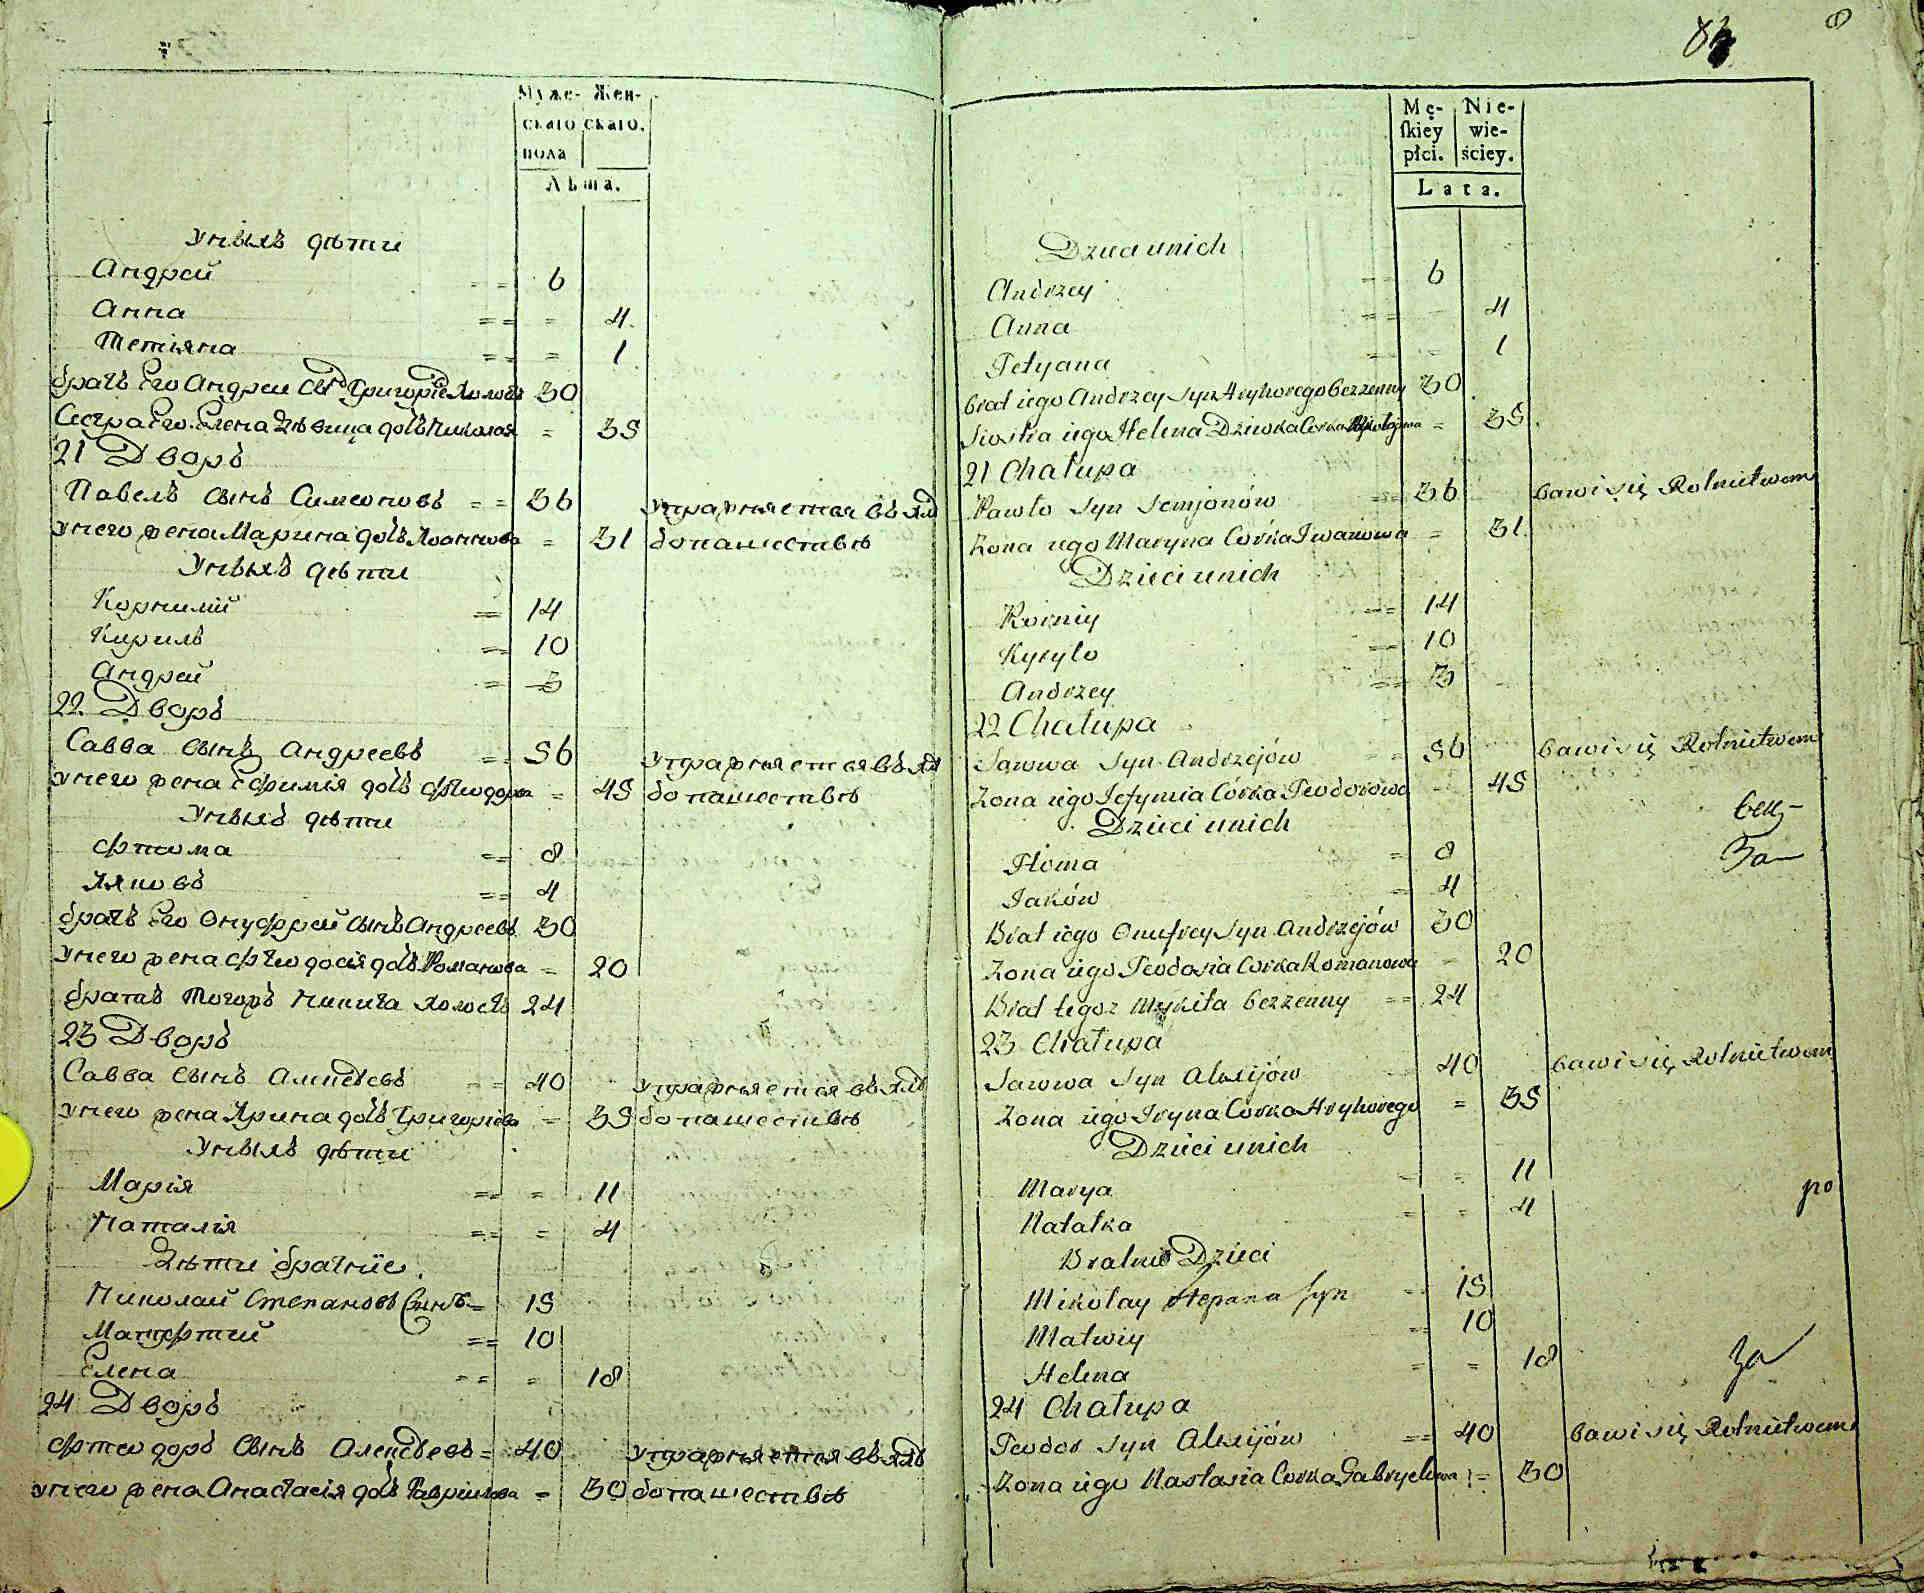 Муже- Жен-
скаго скаго.
пола
Лѣта.
У нихъ дѣти
Андрей == 6
Анна == = 4
Тетіяна == = 1
братъ Его Андрей Григорие Холостъ 30
Сестра Его Елена Дѣвица дочь Николая = 35
21 Дворъ
Павелъ Сынъ Симеоновъ == 36 упражняется въ хлѣ
У него жена Марина дочь Іоаннова = 31 бопашествѣ
У нихъ дѣти
Корнилій == 14
Кирилъ == 10
Андрей == 3
22 Дворъ
Савва Сынъ Андреевъ == 56 упражняется въ хлѣ
У него жена Ефимія дочь Фтеодорова = 45 бопашествѣ
У нихъ дѣти
Фтома == 8
Яковъ == 4
братъ Его Онуфрей Сынъ Андреевъ 30
У него жена Фтеодосія дочь Романова = 20
братъ тогожъ Никита Холостъ 24
23 Дворъ
Савва Сынъ Алексѣевъ == 40 упражняется въ хлѣ
У него жена Ирина дочь Григоріева = 35 бопашествѣ
У нихъ дѣти
Марія == = 11
Наталія == = 4
Дѣти братніе
Николай Степановъ Синъ = 15
Матфтий == 10
Елена == = 18
24 Дворъ
Фтеодоръ Сынъ Алексѣевъ = 40 упражняется въ хлѣ
У него жена Анастасія дочь Гавріилова = 30 бопашествѣ
8
Mę- Nie-
skiey wie-
płci. ściey.
Lata.
Dzieci u nich
Andrzey == 6
Anna == 4
Tetyana = 1
brat iego Andrzey Syn Hryhorego bezzenny 30
Siostra iego Helena Dziewka Corka Mikołajowa = 35
21 Chałupa
Pawło Syn Semjonów == 36 bawi się Rolnictwem
Zona iego Maryna Corka Iwanowa = 31
Dzieci u nich
Korniy == 14
Kyryło == 10
Andrzey == 3
22 Chałupa
Sawwa Syn Andrzejów = 56 bawi się Rolnictwem
Zona iego Jefymia Córka Teodorowa 45
Dzieci u nich
Floma = 8
Jaków = 4
Brat iego Onufrey Syn Andrzejów 30
Zona iego Teodosia Corka Romanowa = 20
Brat tegoz Mykita bezzenny == 24
23 Chałupa
Sawwa Syn Alexijów 40 bawi się Rolnictwem
Zona iego Iryna Corka Hryhorego = 35
Dzieci u nich
Marya = 11
Natałka = = 4
Bratnie Dzieci
Mikołay Stepana syn 15
Matwiy = 10
Helena = = 18
24 Chałupa
Teodor Syn Alexijów == 40 bawi się Rolnictwem
Zona iego Nastasia Corka Gabryelowa = 30